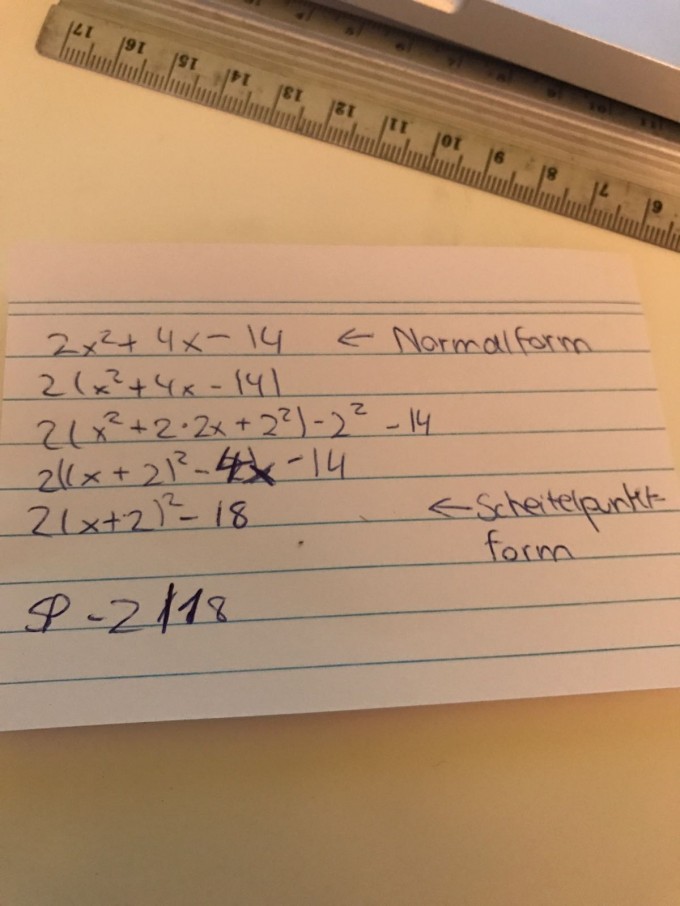 17 16 15 14 13 12 11 10 9 8 7 6
2x²+ 4x - 14 ← Normalform
2(x²+4x - 14)
2(x²+2·2x+2²)-2² -14
2((x+2)²-4) -14
2(x+2)²- 18 ← Scheitelpunkt-
form
SP -2/18